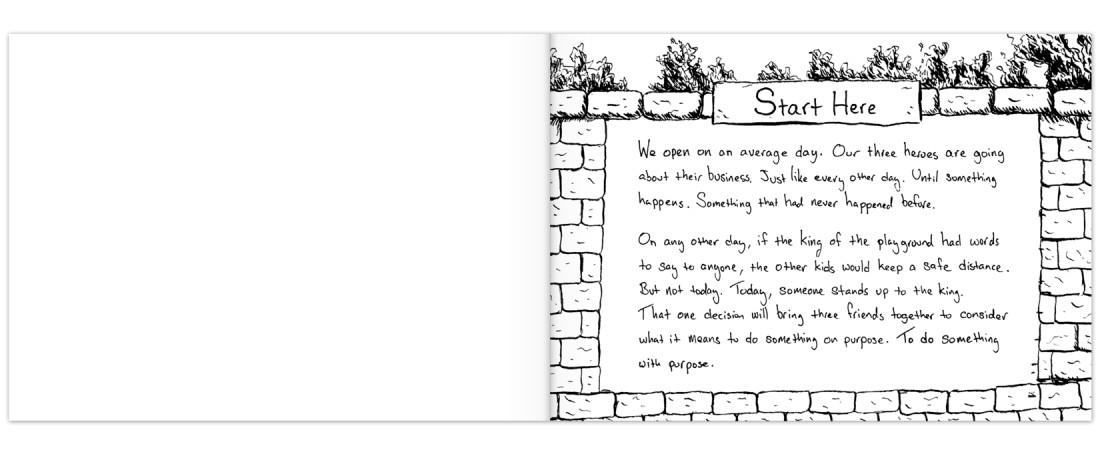 Start Here
We open on an average day. Our three heroes are going
about their business. Just like every other day. Until something
happens. Something that had never happened before.
On any other day, if the king of the playground had words
to say to anyone, the other kids would keep a safe distance.
But not today. Today, someone stands up to the king.
That one decision will bring three friends together to consider
what it means to do something on purpose. To do something
with purpose.